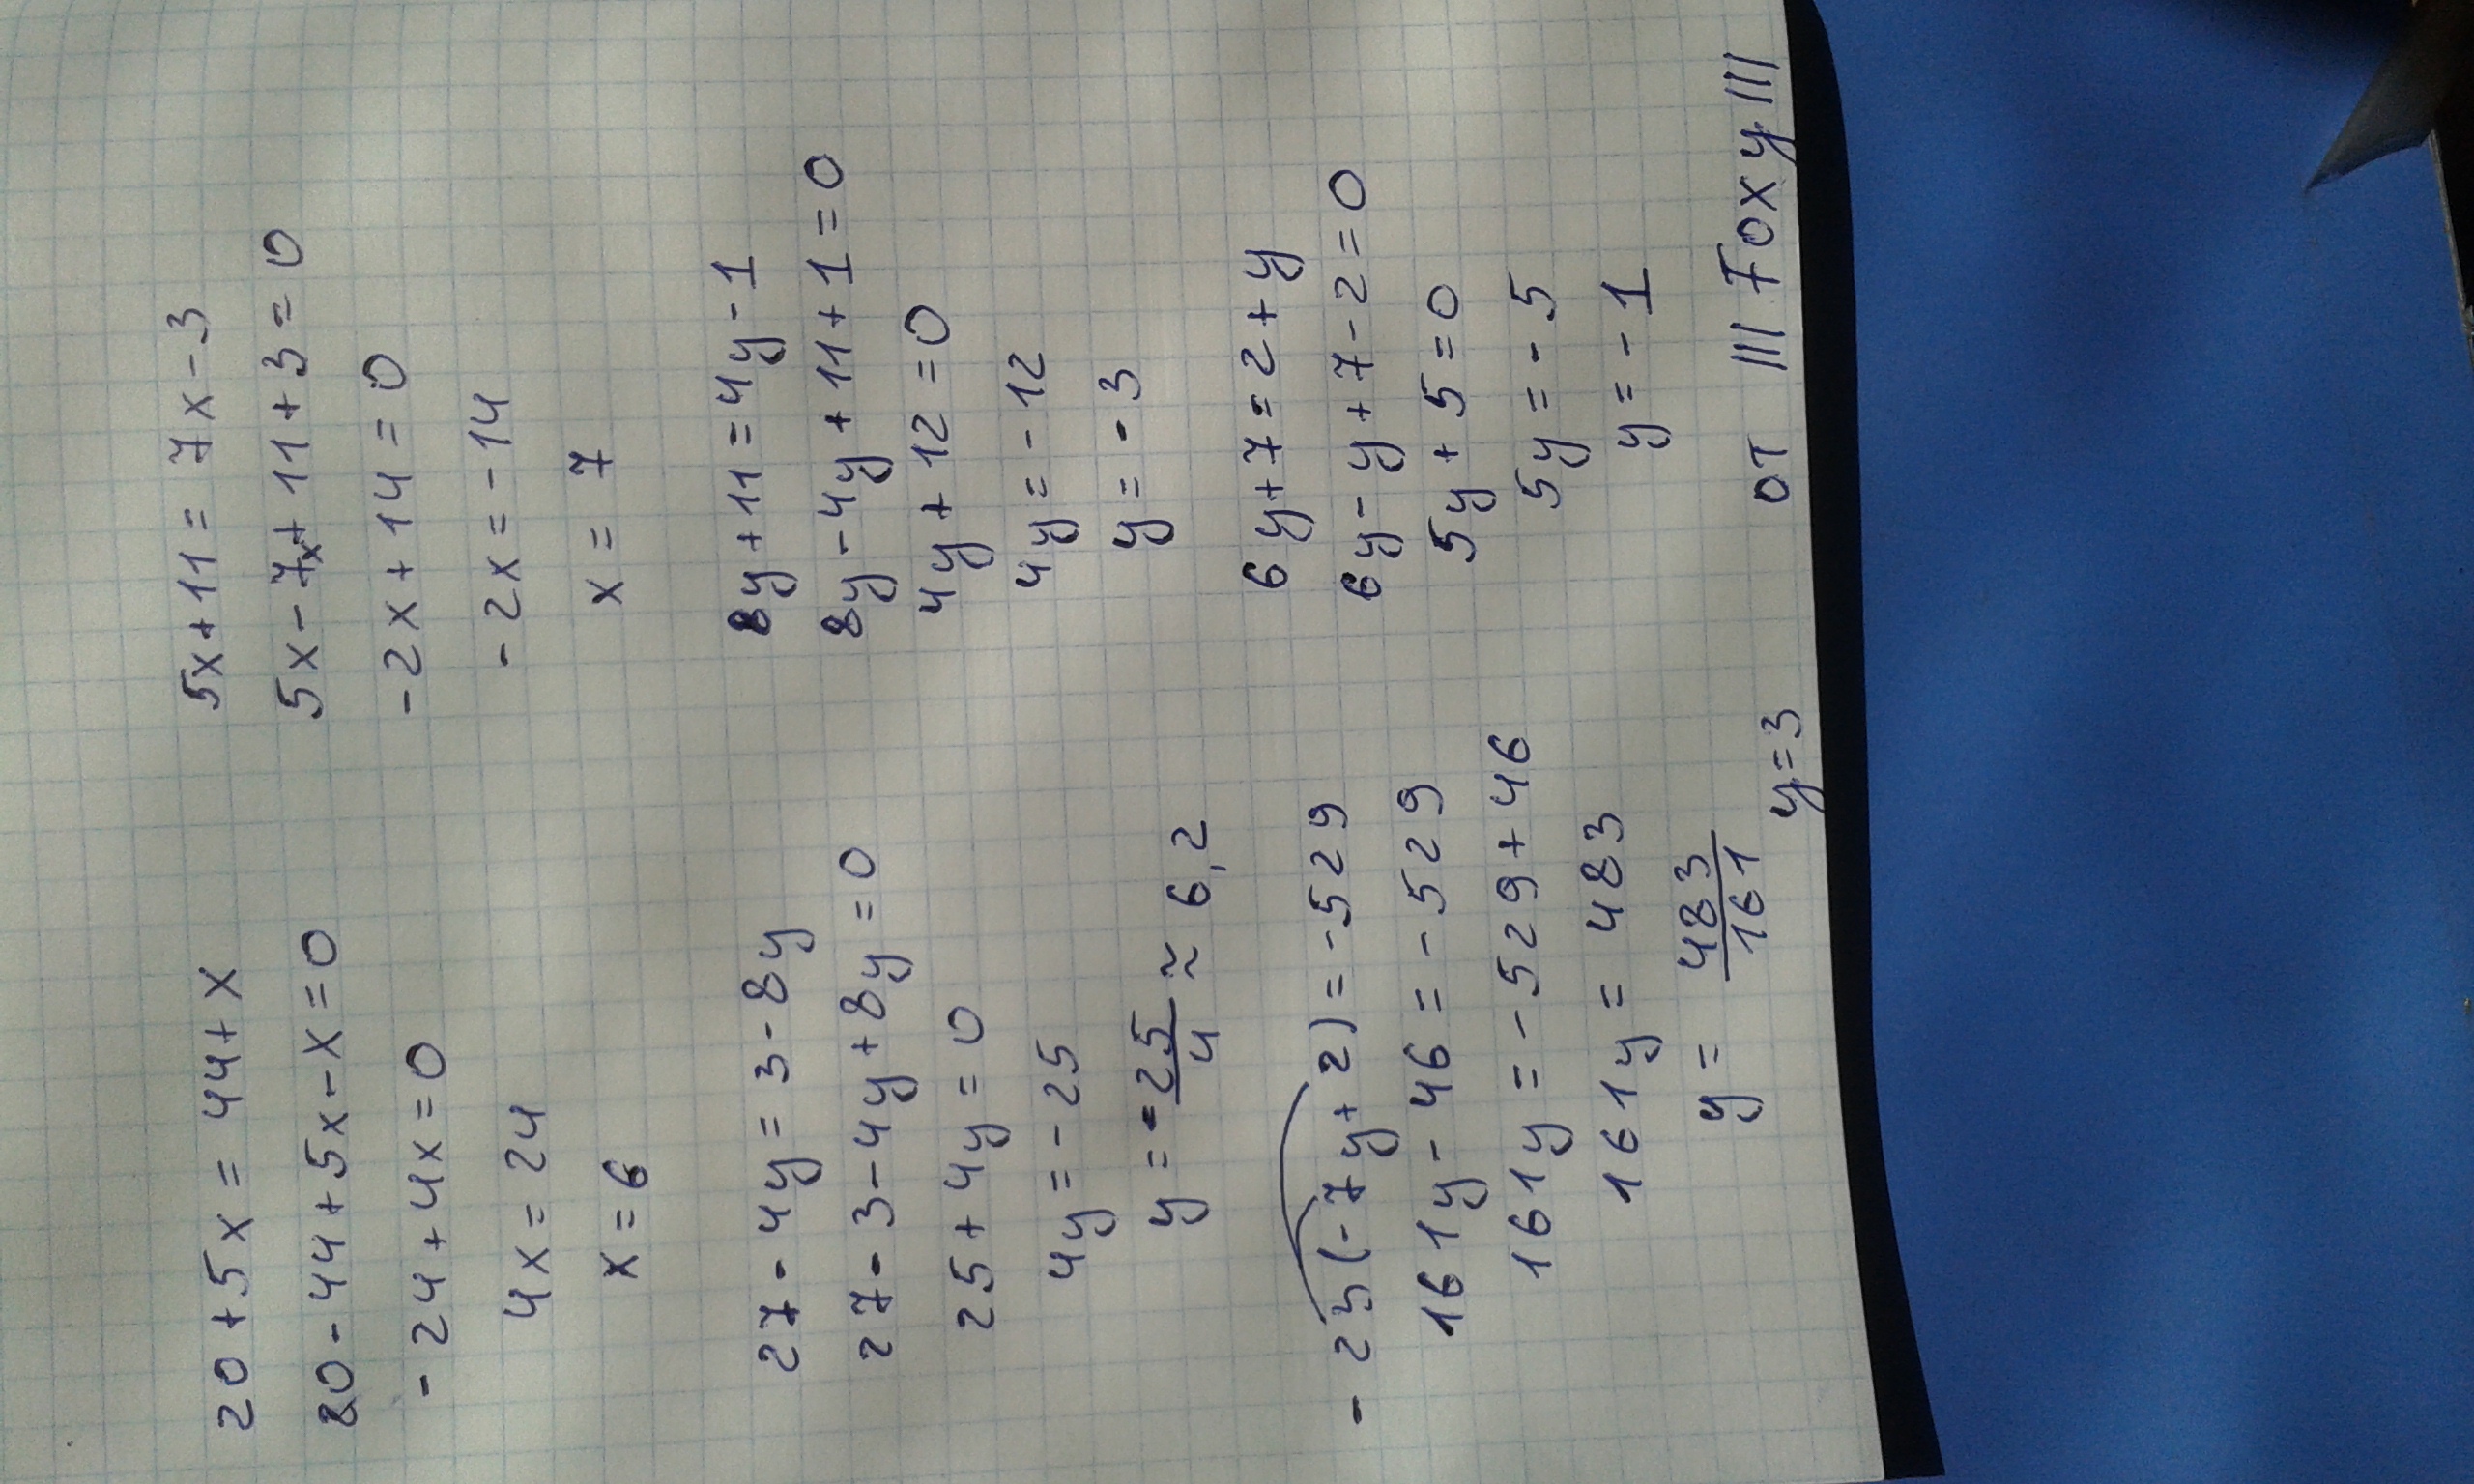 20+5x = 44+x
20-44+5x-x=0
-24+4x=0
4x=24
x=6
27-4y=3-8y
27-3-4y+8y=0
25+4y=0
4y=-25
y=-25/4≈6,2
-23(-7y+2)=-529
161y-46=-529
161y=-529+46
161y=483
y=483/161
y=3
5x+11=7x-3
5x-7x+11+3=0
-2x+14=0
-2x=-14
x=7
8y+11=4y-1
8y-4y+11+1=0
4y+12=0
4y=-12
y=-3
6y+7=2+y
6y-y+7-2=0
5y+5=0
5y=-5
y=-1
от ||| Foxy |||